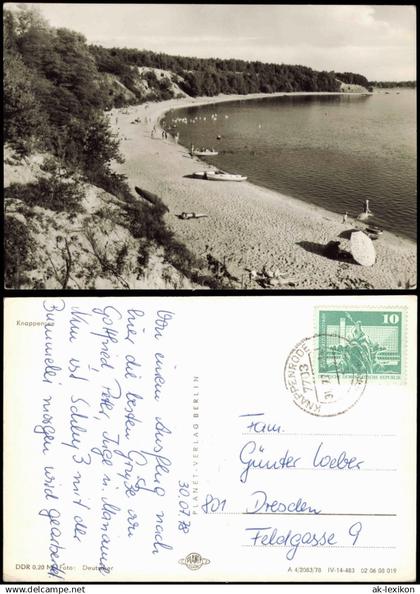 Knappensee
30.07.78
Von einem Ausflug nach
hier die besten Grüße an
Gottfried, Peter, Inge u. Marianne
Nun ist Schluß mit der
morgen wird gearbeitet
DDR 0,20 M Foto: Deutscher
PLANET-VERLAG BERLIN
PLANET
A 4/2083/78 IV-14-483 02 06 08 019
7713 KNAPPENRODE
10
DEUTSCHE DEMOKRATISCHE REPUBLIK
Fam.
Günter Weber
801 Dresden
Feldgasse 9
© ak-lexikon.de